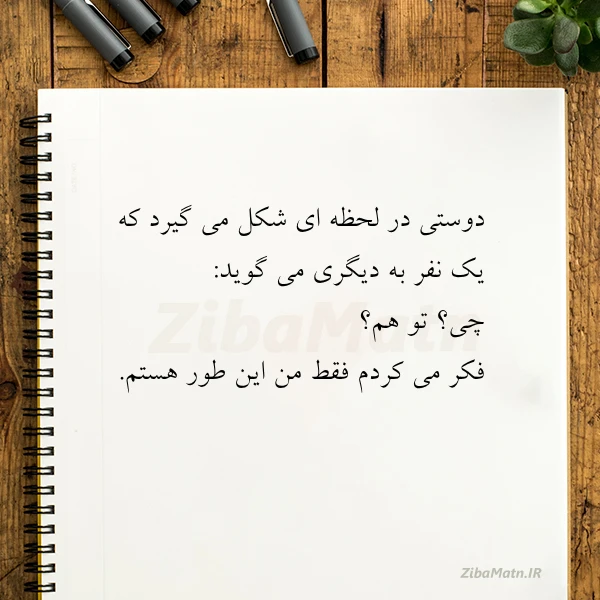 دوستی در لحظه ای شکل می گیرد که
یک نفر به دیگری می گوید:
چی؟ تو هم؟
فکر می کردم فقط من این طور هستم.
ZibaMatn
ZibaMatn.IR